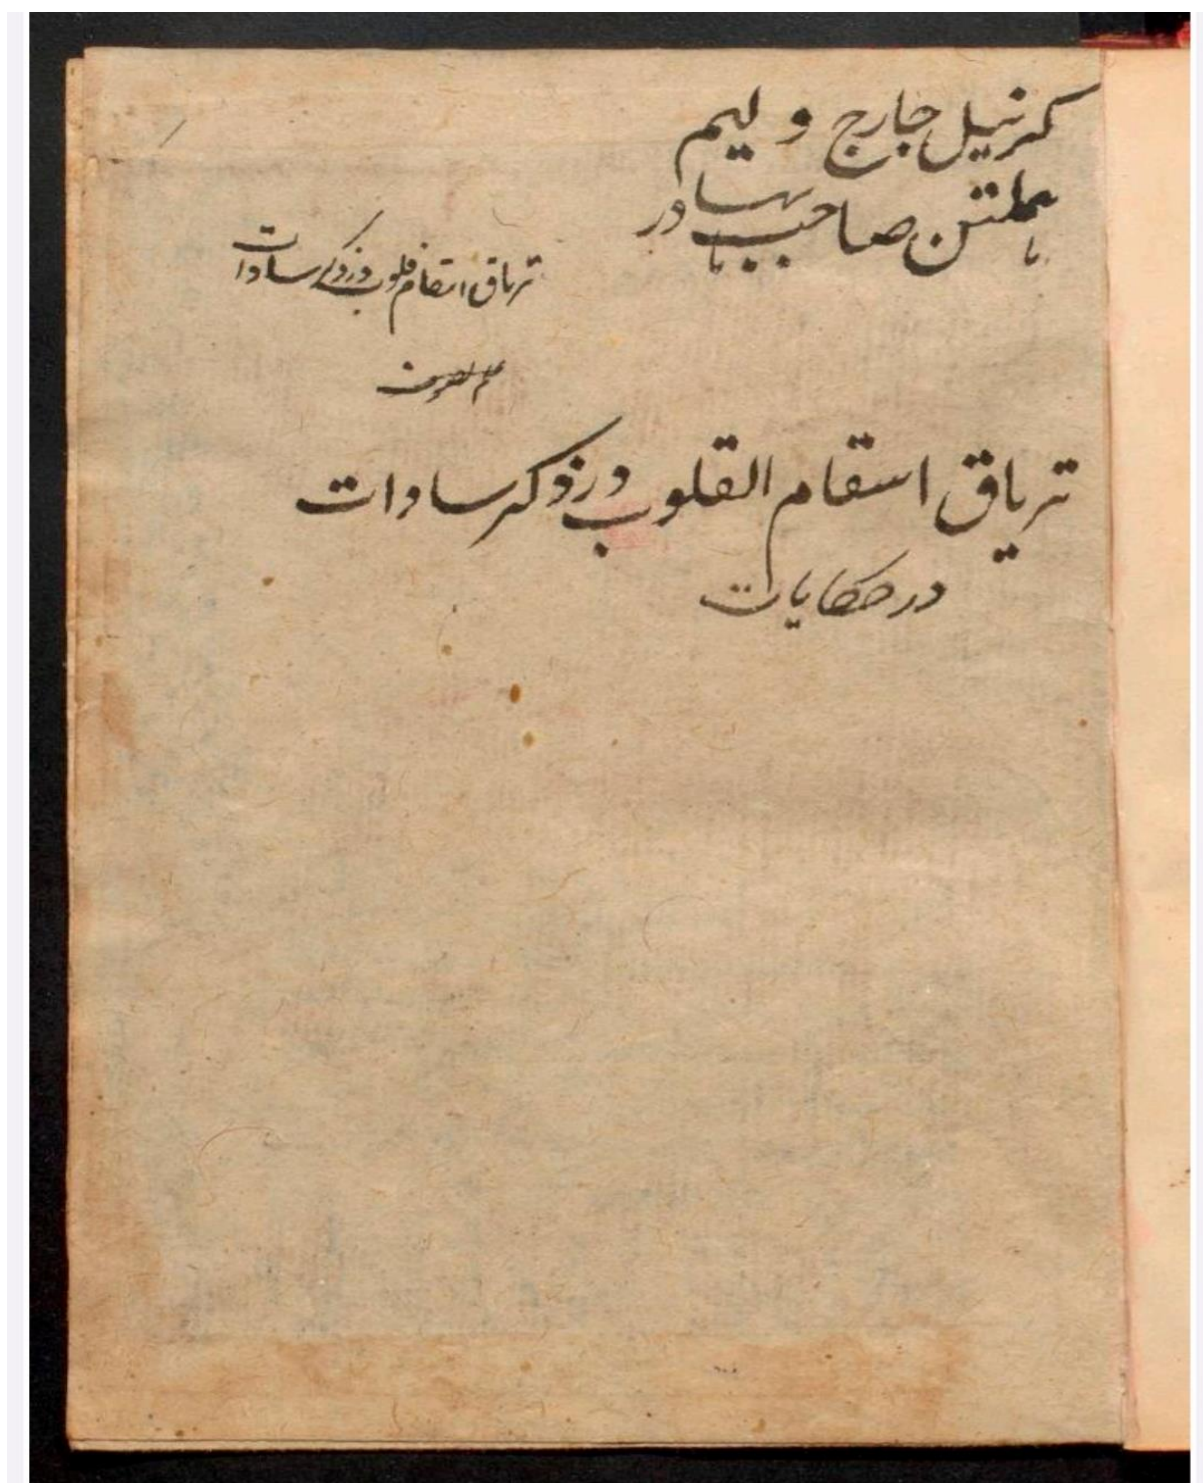 کرنیل جارج ولیم
هملتن صاحب بهادر
تریاق اسقام قلوب در ذکر سادات
تریاق اسقام القلوب در ذکر سادات
در حکایات